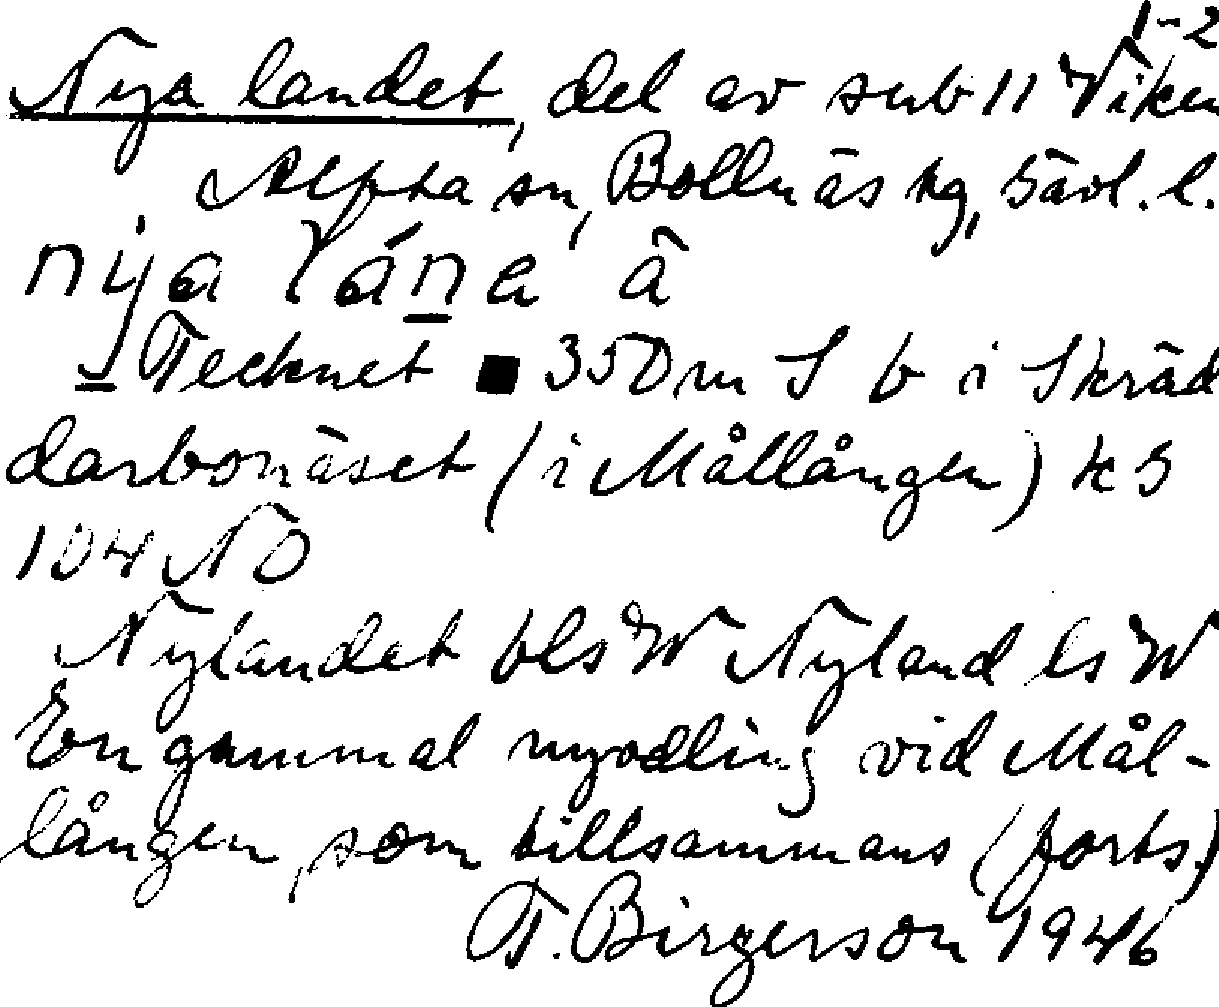 1-2
Nya landet, del av sub 11 Viken
Alfta sn, Bollnäs kg, Gävl. l.
nya lána â
Tecknet ■ 350 m S b i Skräd
darbonäset (i Mållången) k 5
104 NO
Nylandet bls W Nyland ls W
En gammal nyodling vid Mål-
lången, som tillsammans (forts.)
T. Birgerson 1946